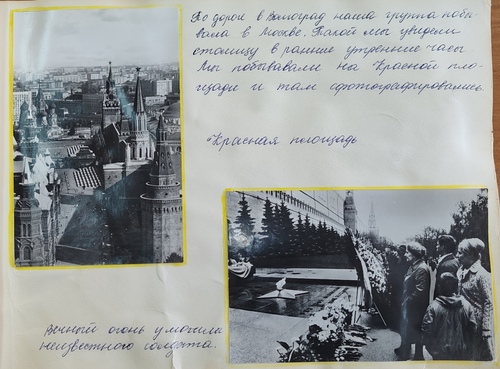 По дороге в Волгоград наша группа побы-
вала в Москве. Такой мы увидели
столицу в ранние утренние часы.
Мы побывали на Красной пло-
щади и там сфотографировались.
Красная площадь
Вечный огонь у могилы
неизвестного солдата.